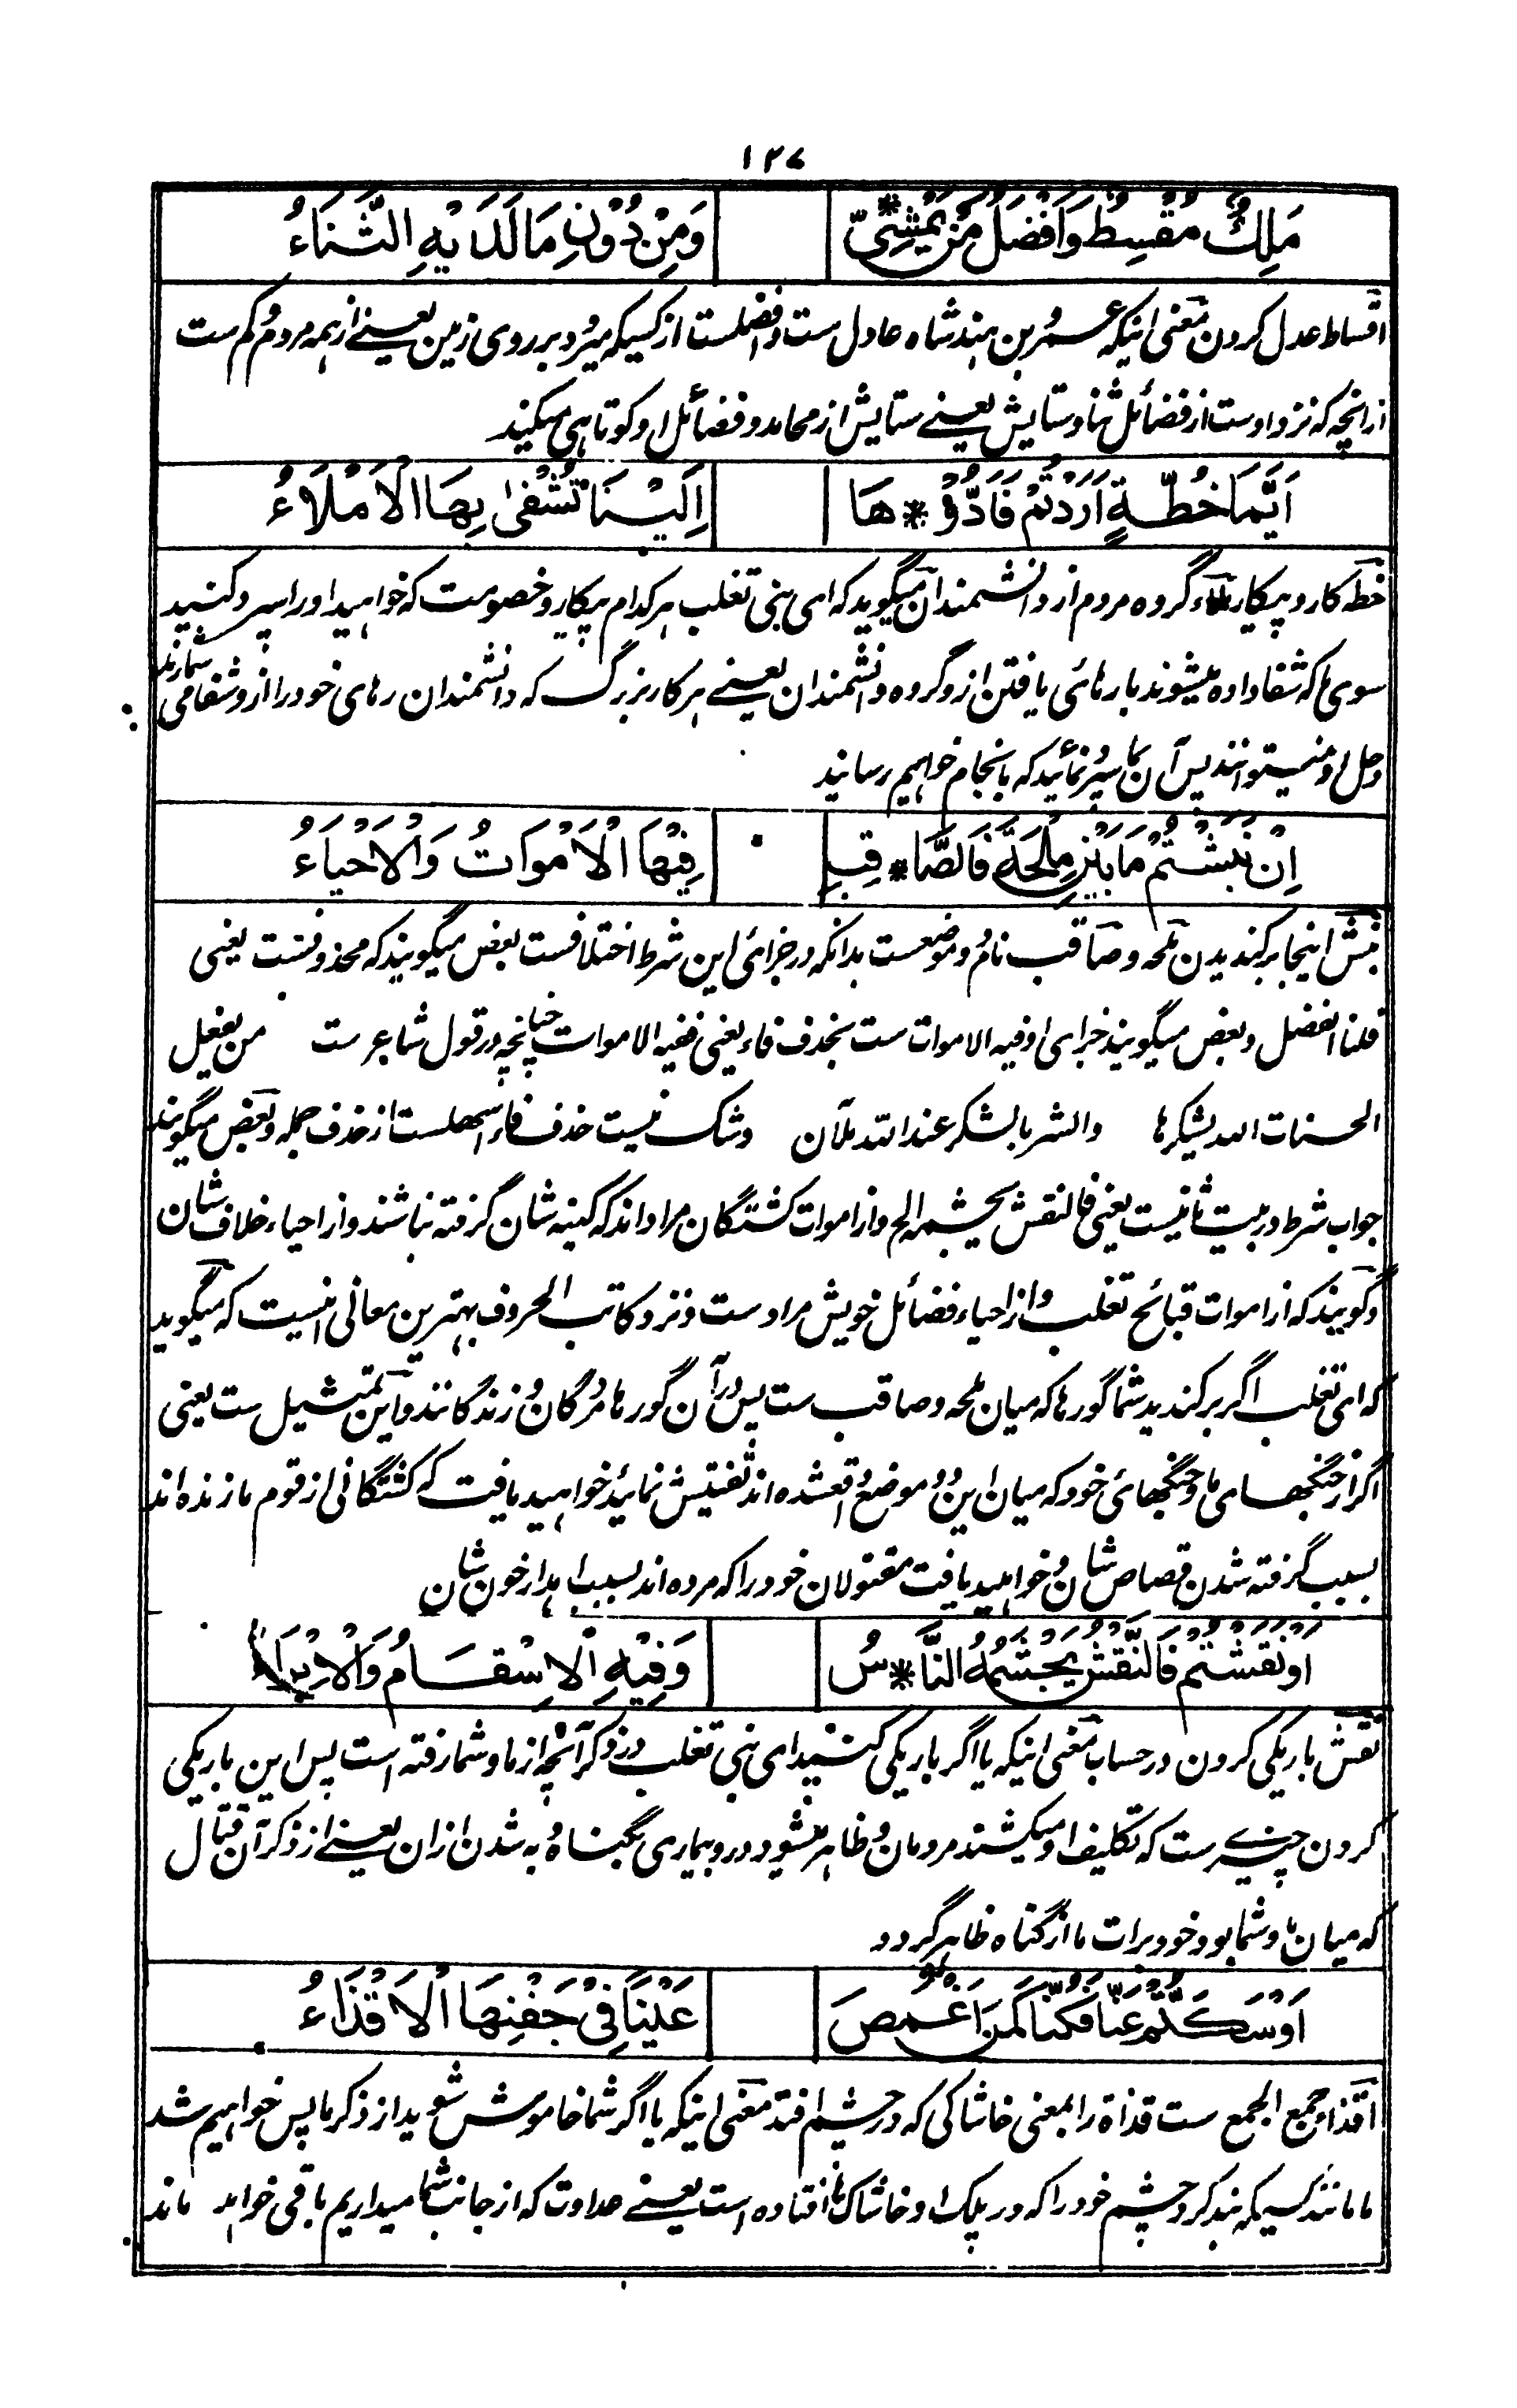 ١٢٧
مَلِكٌ مُقْسِطٌ وَاَفْضَلُ مَنْ يَّمْشِىْ * وَمِنْ دُوْنِ مَا لَدَيْهِ الثَّنَاءُ
اقساط عدل کردن معنی اینکه عمرو بن هند شاه عادل ست و افضلست از کسیکه میرود بر روی زمین یعنے از همه مردم و کم ست
ازانچه که نزد اوست از فضائل ثنا و ستایش یعنے ستایش از محامد و فضائل او کوتاهی میکند
اَيَّمَا خُطَّةٍ اَرَدْتُمْ فَاَدُّوْ * هَا اِلَيْنَا تُشْفٰى بِهَا الْاَمْلَاءُ
خطه کار و پیکار املاء گروه مردم از دانشمندان میگوید که ای بنی تغلب هر کدام پیکار و خصومت که خواهید او را سپرد کنید
سوی ما که شفا داده میشوند با رهائی یافتن ازو گروه دانشمندان یعنے هر کار بزرگ که دانشمندان رهای خود را ازو شفا می شمارند
و حل او نمیتوانند پس آن بما سپر نمائید که بانجام خواهیم رسانید
اِنْ نَبَشْتُمْ مَا بَيْنَ مِلْحَةَ فَالصَّا * قِبِ فِيْهَا الْاَمْوَاتُ وَالْاَحْيَاءُ
نبش اینجا برکندیدن ملحه و صاقب نام دو موضعست بدانکه در جزائی این شرط اختلافست بعض میگویند که محذوفست یعنی
فلنا الفضل و بعض میگویند جزای او فیه الاموات ست بحذف فاء یعنی ففیه الاموات چنانچه در قول شاعر ست من یفعل
الحسنات الله یشکرها والشر بالشکر عند الله ملآن و شک نیست حذف فاء اسهلست از حذف جمله و بعض میگویند
جواب شرط در بیت ثانیست یعنی فالنقش یجشمه الخ و از اموات کشتگان مراد اند که کینه شان گرفته نباشند و از احیاء خلاف شان
و گویند که از اموات قبائح تغلب و از احیاء فضائل خویش مراد ست و نزد کاتب الحروف بهترین معانی اینست که میگوید
که ای تغلب اگر برکندید شما گورها که میان ملحه و صاقب ست پس در آن گورها مردگان و زندگانند و این تمثیل ست یعنی
اگر از جنگهای ما و جنگهائی خود که میان این دو موضع واقعشده اند تفتیش نمائید خواهید یافت که کشتگانی از قوم ما زنده اند
بسبب گرفته شدن قصاص شان و خواهید یافت مقتولان خود را که مرده اند بسبب اهدار خون شان
اَوْ نَقَشْتُمْ فَالنَّقْشُ يَجْشَمُهُ النَّا * سُ وَفِيْهِ الْاِسْقَامُ وَالْاِبْرَاءُ
نقش باریکی کردن در حساب معنی اینکه یا اگر باریکی کنید ای بنی تغلب در ذکر آنچه از ما و شما رفته است پس این باریکی
کردن چیزے ست که تکلیف او میکشند مردمان و ظاهر میشود درو بیماری بگناه و به شدن ازان یعنے از ذکر آن قتال
که میان ما و شما بود خود برات ما از گناه ظاهر گردد
اَوْ سَكَتُّمْ عَنَّا فَكُنَّا كَمَنْ اَغْمَضَ عَيْنًا فِىْ جَفْنِهَا الْاَقْذَاءُ
اقذاء جمع الجمع ست قذاة را بمعنی خاشاکی که در چشم افتد معنی اینکه یا اگر شما خاموش شوید از ذکر ما پس خواهیم شد
ما مانند کسیکه بند کرد چشم خود را که در پلک او خاشاکها افتاده است یعنے عداوت که از جانب شما میداریم باقی خواهد ماند